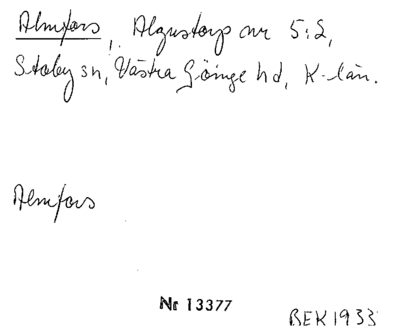 Almfors, Algustorp nr 5:2,
Stoby sn, Västra Göinge hd, K-län.
Almfors
Nr 13377
BEK 1933